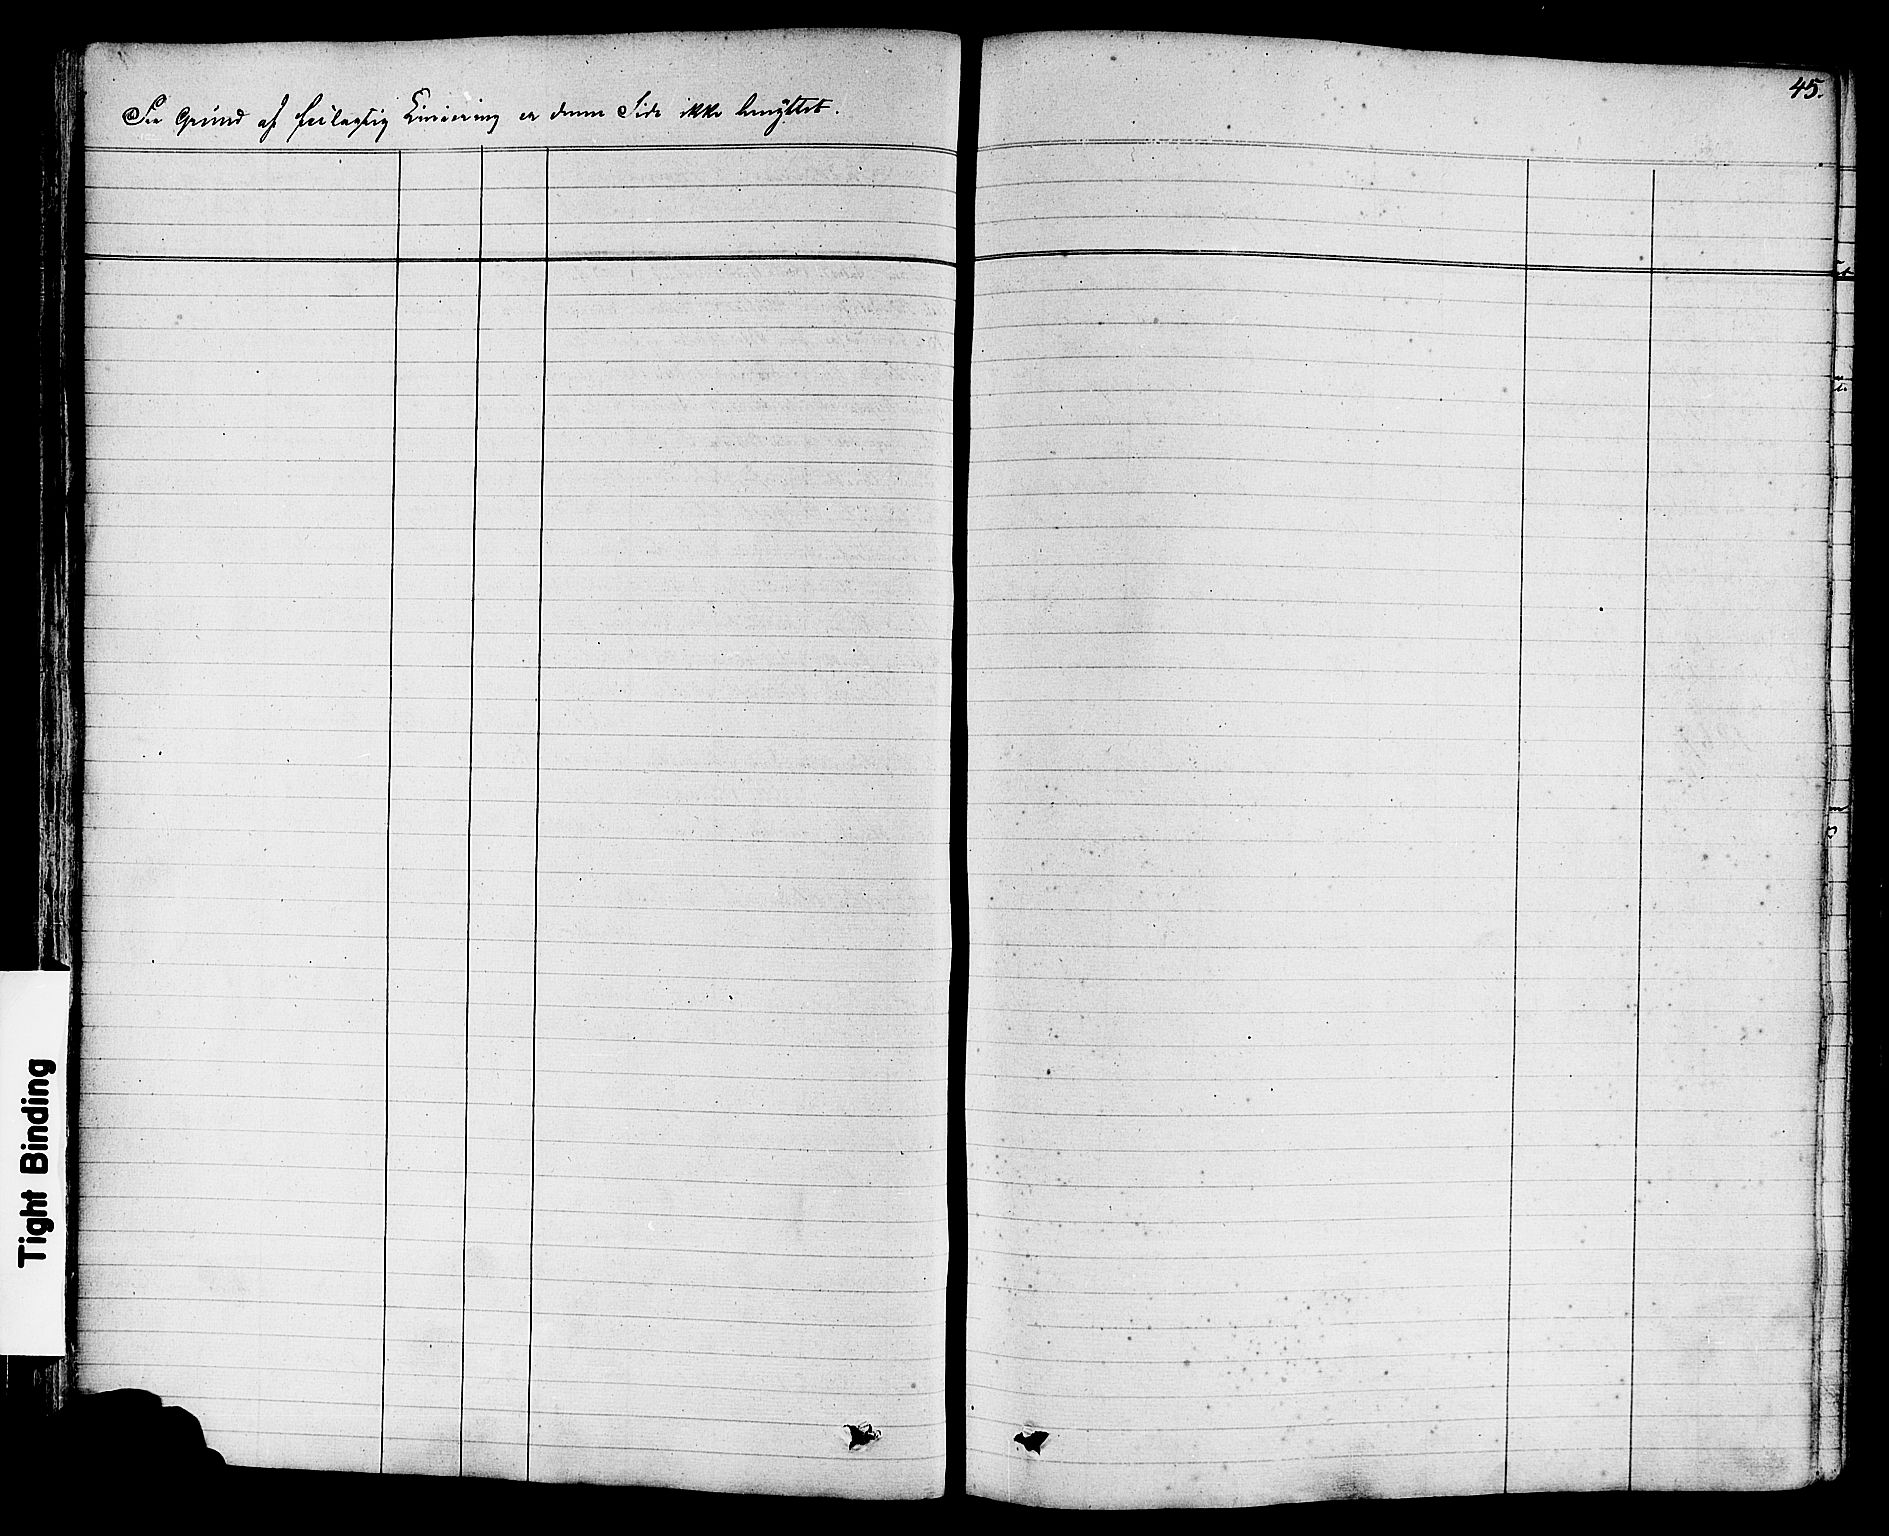 Paa Grund af feilagtig Liniering er denne Side ikke benÿttet.
45.
Tight Binding